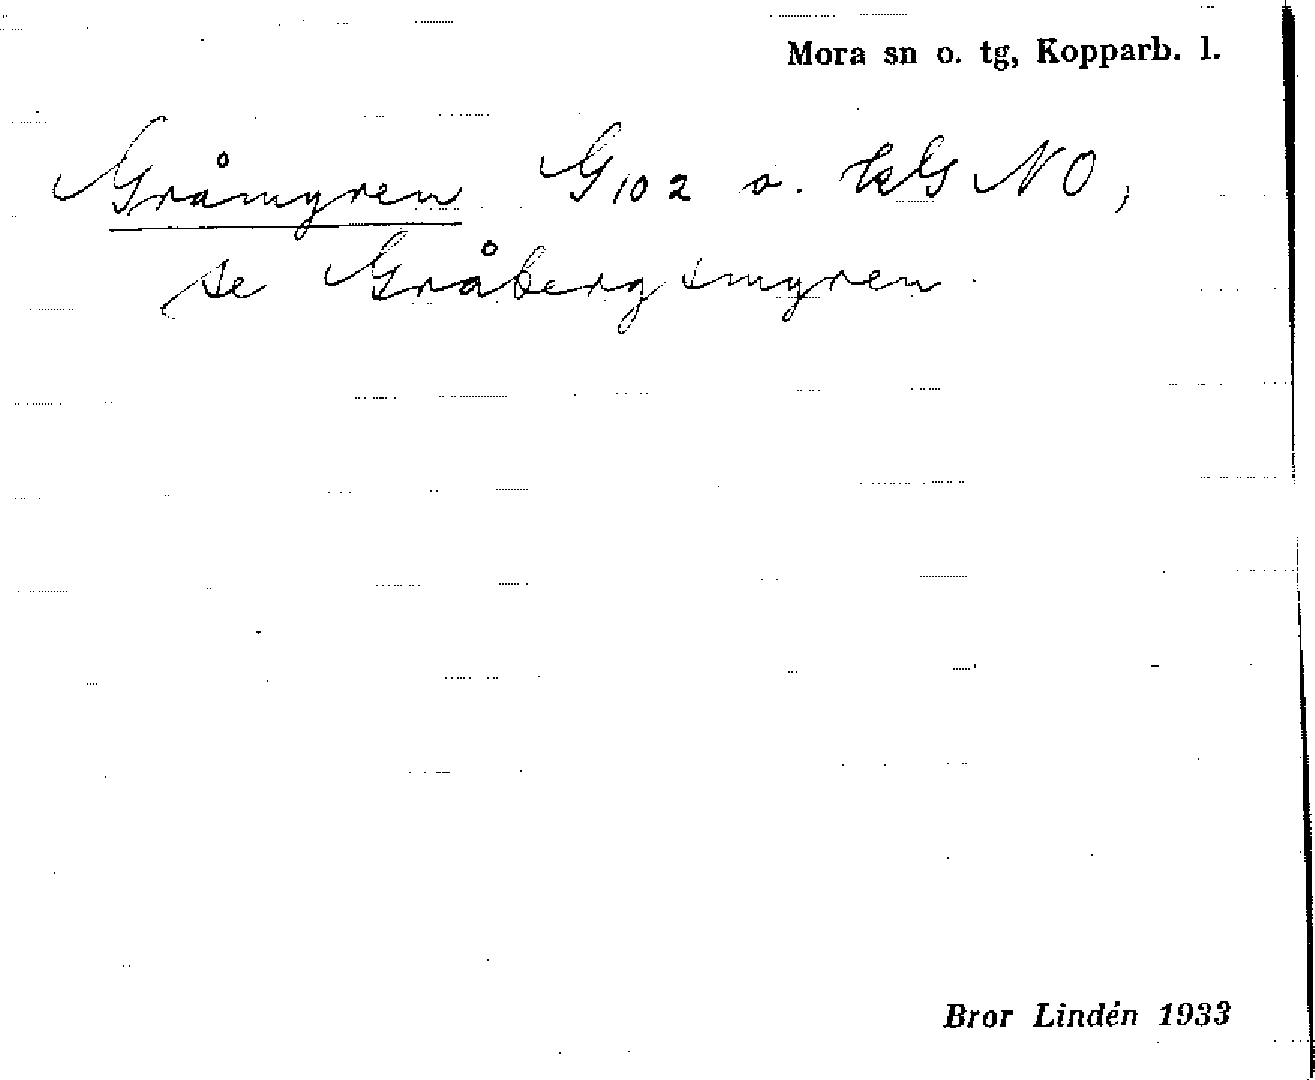 Mora sn o. tg, Kopparb. l.
Gråmyren G 102 o. kG NO,
se Gråbergsmyren.
Bror Lindén 1933